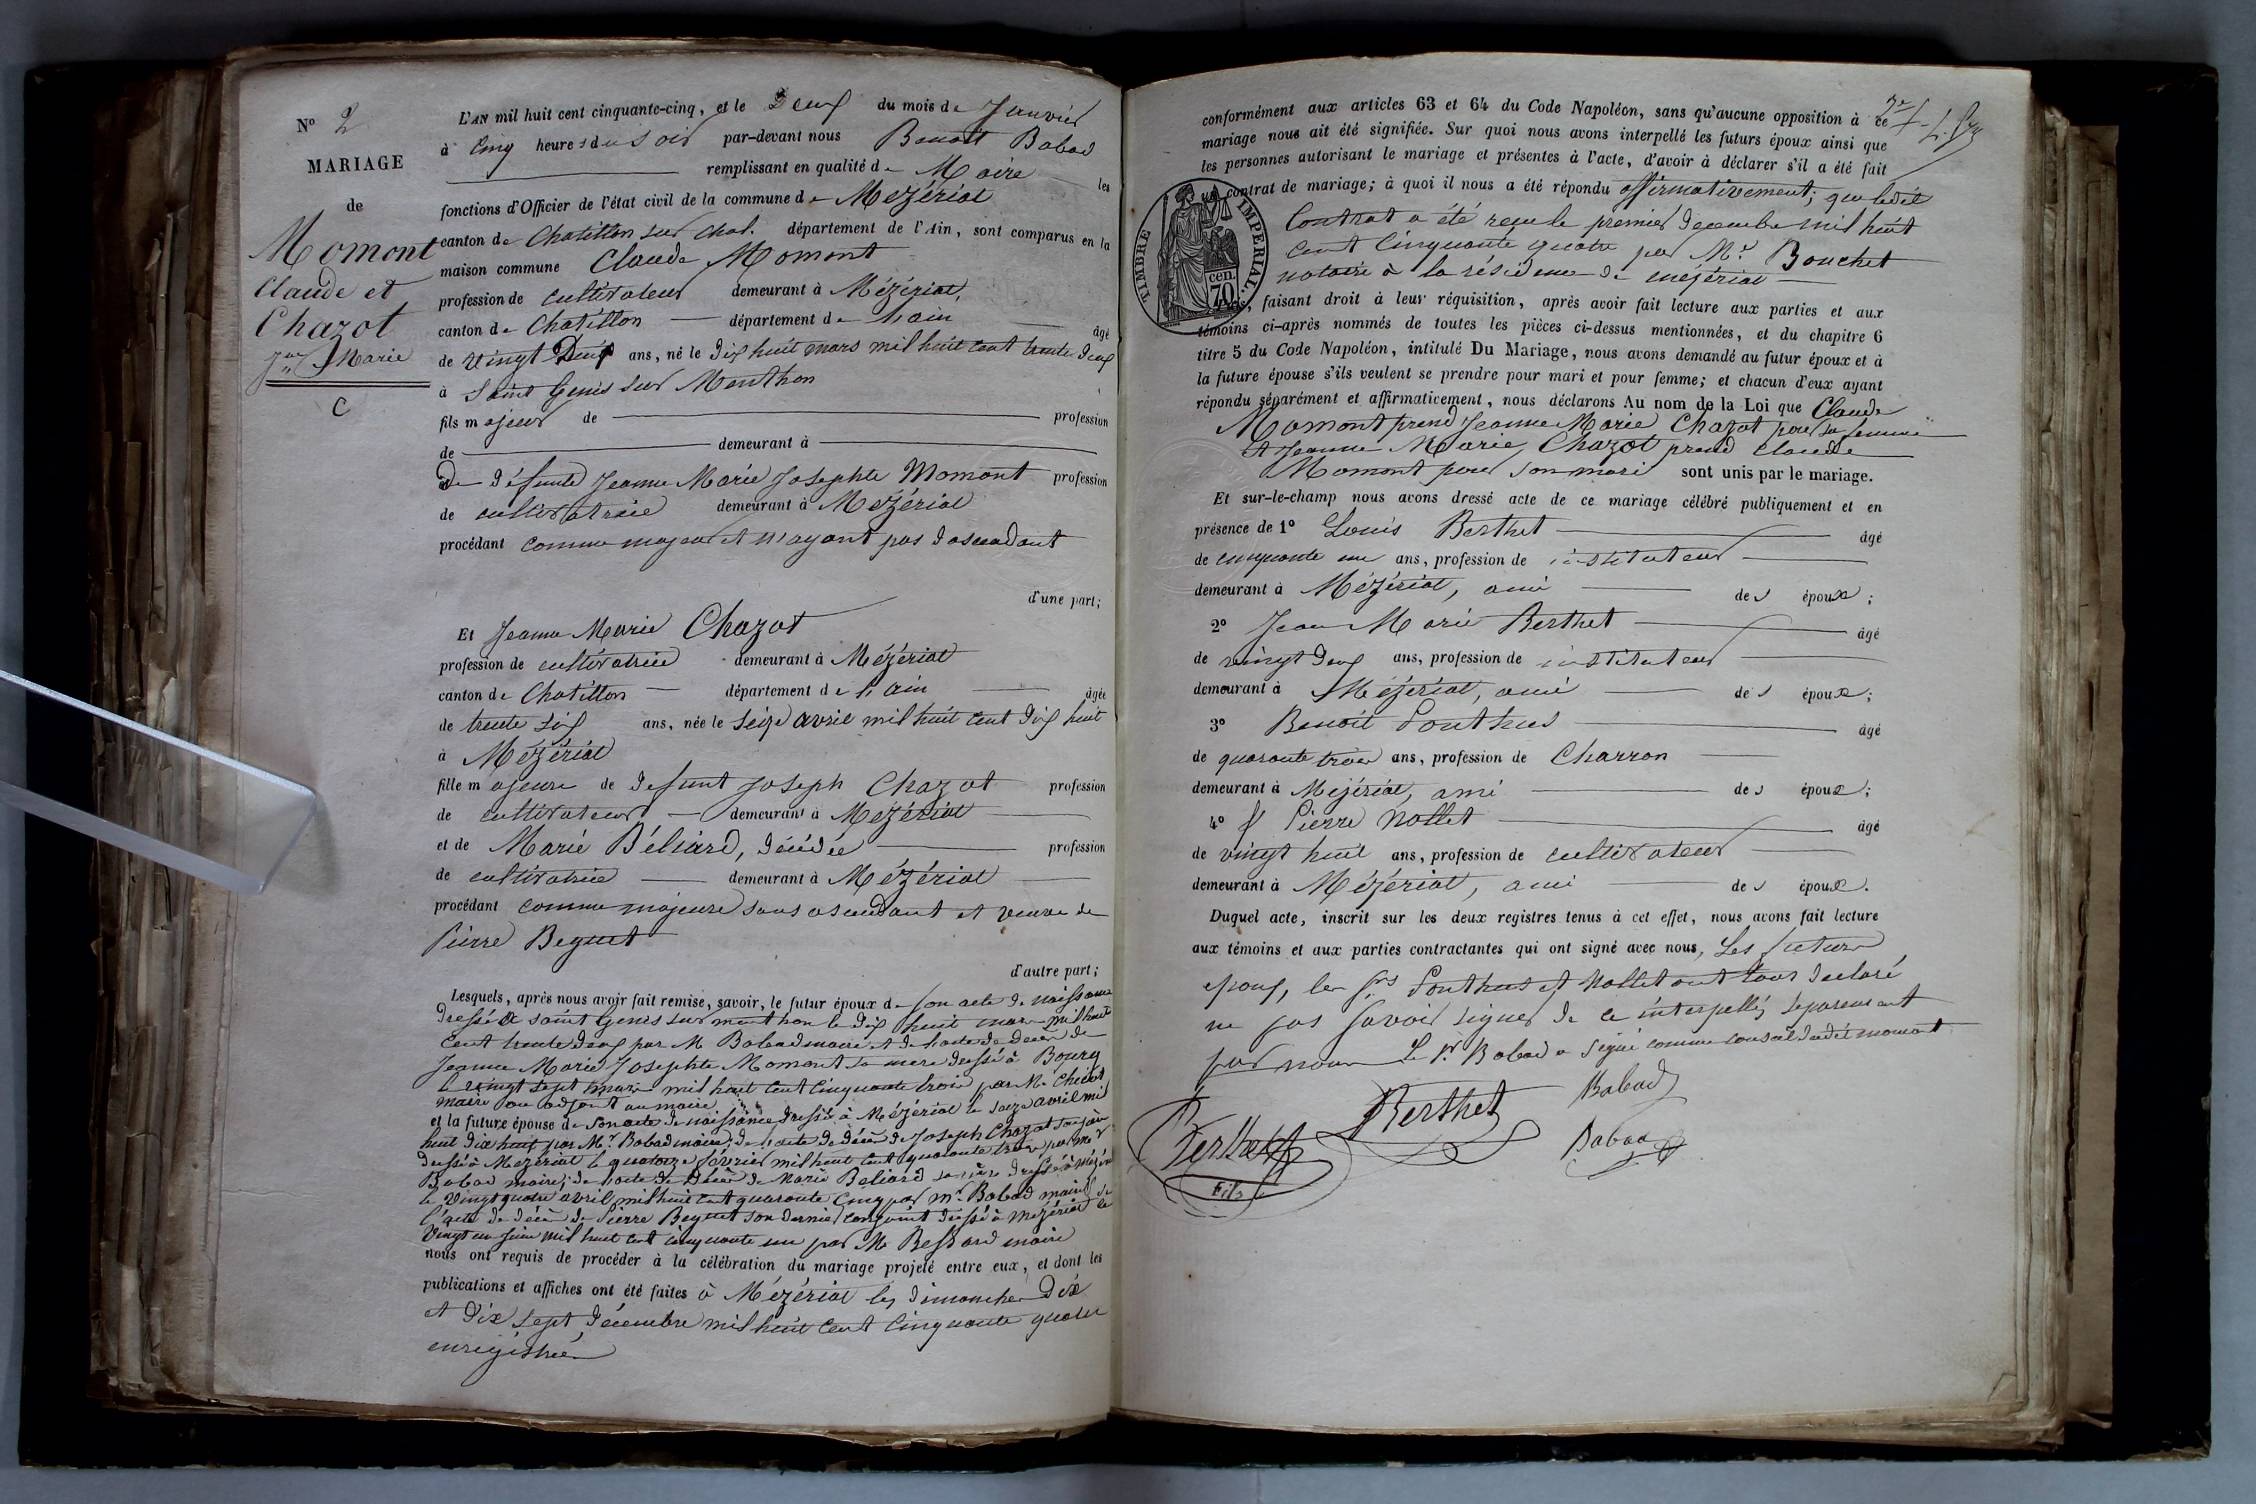 N° 2
MARIAGE
de
Momont
Claude et
Chazot
Jne Marie
C
L'AN mil huit cent cinquante-cinq, et le Deux du mois de Janvier
à cinq heures du soir par-devant nous Benoit Babad
remplissant en qualité de Maire les
fonctions d'Officier de l'état civil de la commune de Mézériat
canton de Chatillon sur Chal. département de l'Ain, sont comparus en la
maison commune Claude Momont
profession de cultivateur demeurant à Mézériat,
canton de Chatillon département de l'ain âgé
de vingt Deux ans, né le dix huit mars mil huit cent trente deux
à Saint Genis sur Menthon
fils majeur de profession
de demeurant à
de défunte Jeanne Marie Josephte Momont profession
de cultivatrice demeurant à Mézériat
procédant comme majeur et n'ayant pas d'ascendant
d'une part;
Et Jeanne Marie Chazot
profession de cultivatrice demeurant à Mézériat
canton de Chatillon département de l'ain âgée
de trente six ans, née le seize avril mil huit cent dix huit
à Mézériat
fille majeure de défunt Joseph Chazot profession
de cultivateur demeurant à Mézériat
et de Marie Béliard, décédée profession
de cultivatrice demeurant à Mézériat
procédant comme majeure sans ascendant et veuve de
Pierre Beguet
d'autre part;
Lesquels, après nous avoir fait remise, savoir, le futur époux de son acte de naissance
dressé à saint Genis sur menthon le dix huit mars mil huit
cent trente deux par M Babad maire et de l'acte de décès de
Jeanne Marie Josephte Momont sa mère dressé à Bourg
le vingt sept mars mil huit cent cinquante trois par M. Chicot
maire ou adjoint au maire
et la future épouse de son acte de naissance dressé à Mézériat le seize avril mil
huit dix huit par Mr Babad maire; de l'acte de décès de Joseph Chazot son père
dressé à Mézériat le quatorze février mil huit cent quarante trois par Mr
Babad maire; de l'acte de décès de Marie Beliard sa mère dressé à Mézériat
le vingt quatre avril mil huit cent quarante cinq par Mr. Babad maire de
l'acte de décès de Pierre Beguet son dernier conjoint dressé à Mézériat le
vingt un juin mil huit cent cinquante un par M Bessard maire
nous ont requis de procéder à la célébration du mariage projeté entre eux, et dont les
publications et affiches ont été faites à Mézériat les dimanches Dix
et Dix sept décembre mil huit cent cinquante quatre
enregistrées
conformément aux articles 63 et 64 du Code Napoléon, sans qu'aucune opposition à ce
mariage nous ait été signifiée. Sur quoi nous avons interpellé les futurs époux ainsi que
les personnes autorisant le mariage et présentes à l'acte, d'avoir à déclarer s'il a été fait
contrat de mariage; à quoi il nous a été répondu affirmativement; que ledit
Contrat a été reçu le premier decembre mil huit
cent cinquante quatre par Mr. Bouchet
notaire à la résidence de mézériat
TIMBRE IMPERIAL.
70 cen.
faisant droit à leur réquisition, après avoir fait lecture aux parties et aux
témoins ci-après nommés de toutes les pièces ci-dessus mentionnées, et du chapitre 6
titre 5 du Code Napoléon, intitulé Du Mariage, nous avons demandé au futur époux et à
la future épouse s'ils veulent se prendre pour mari et pour femme; et chacun d'eux ayant
répondu séparément et affirmativement, nous déclarons Au nom de la Loi que Claude
Momont prend Jeanne Marie Chazot pour sa femme
et Jeanne Marie Chazot prend Claude
Momont pour son mari sont unis par le mariage.
Et sur-le-champ nous avons dressé acte de ce mariage célébré publiquement et en
présence de 1° Louis Berthet âgé
de cinquante un ans, profession de instituteur
demeurant à Mézériat, ami des époux;
2° Jean Marie Berthet âgé
de vingt deux ans, profession de instituteur
demeurant à Mézériat, ami des époux;
3° Benoit Ponthus âgé
de quarante trois ans, profession de Charron
demeurant à Mézériat, ami des époux;
4° Pierre Nallet âgé
de vingt huit ans, profession de cultivateur
demeurant à Mézériat, ami des époux.
Duquel acte, inscrit sur les deux registres tenus à cet effet, nous avons fait lecture
aux témoins et aux parties contractantes qui ont signé avec nous, Les futurs
époux, les srs Ponthus et Nallet ont tous déclaré
ne pas savoir signer de ce interpellés séparement
par nous Le sr Babad a signé comme conseil dudit momont
Berthet Babad
Berthet Babad
Fils